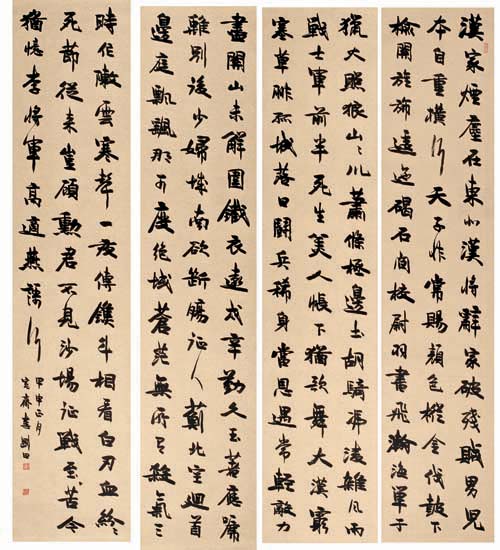 漢家煙塵在東北漢將辭家破殘賊男兒
本自重橫行天子非常賜顏色摐金伐鼓下
榆關旌旆逶迤碣石間校尉羽書飛瀚海單于
獵火照狼山〻川蕭條極邊土胡騎憑陵雜風雨
戰士軍前半死生美人帳下猶歌舞大漠窮
塞草腓孤城落日鬥兵稀身當恩遇常輕敵力
盡關山未解圍鐵衣遠戍辛勤久玉箸應啼
離別後少婦城南欲斷腸征人薊北空迴首
邊庭飄颻那可度絕域蒼茫無所有殺氣三
時作陣雲寒聲一夜傳鐎斗相看白刃血紛〻
死節從來豈顧勳君不見沙場征戰至苦今
猶憶李將軍高適燕歌行
甲申正月